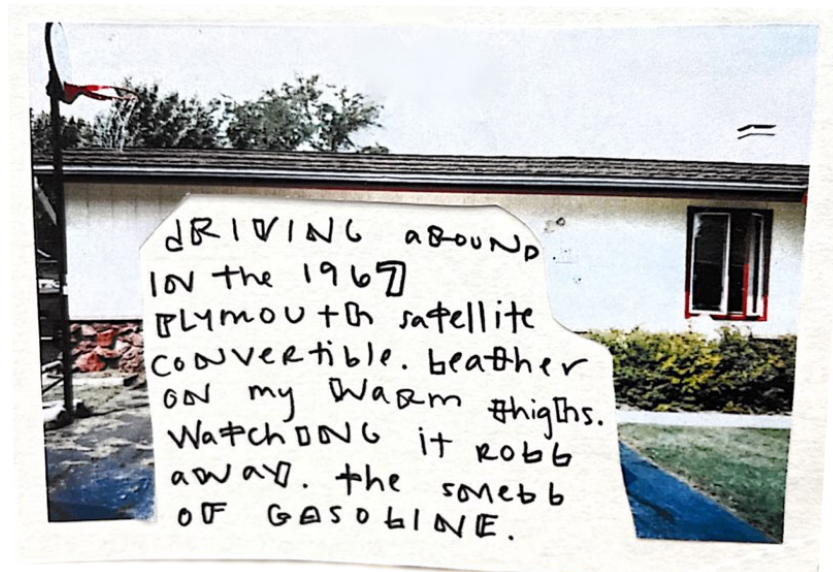 dRIVING aROUND
IN the 1967
PLYMOUtH satellite
CONVERtible. leather
ON my WaRm thighs.
WatchING it ROLL
away. the smell
OF GASOLINE.